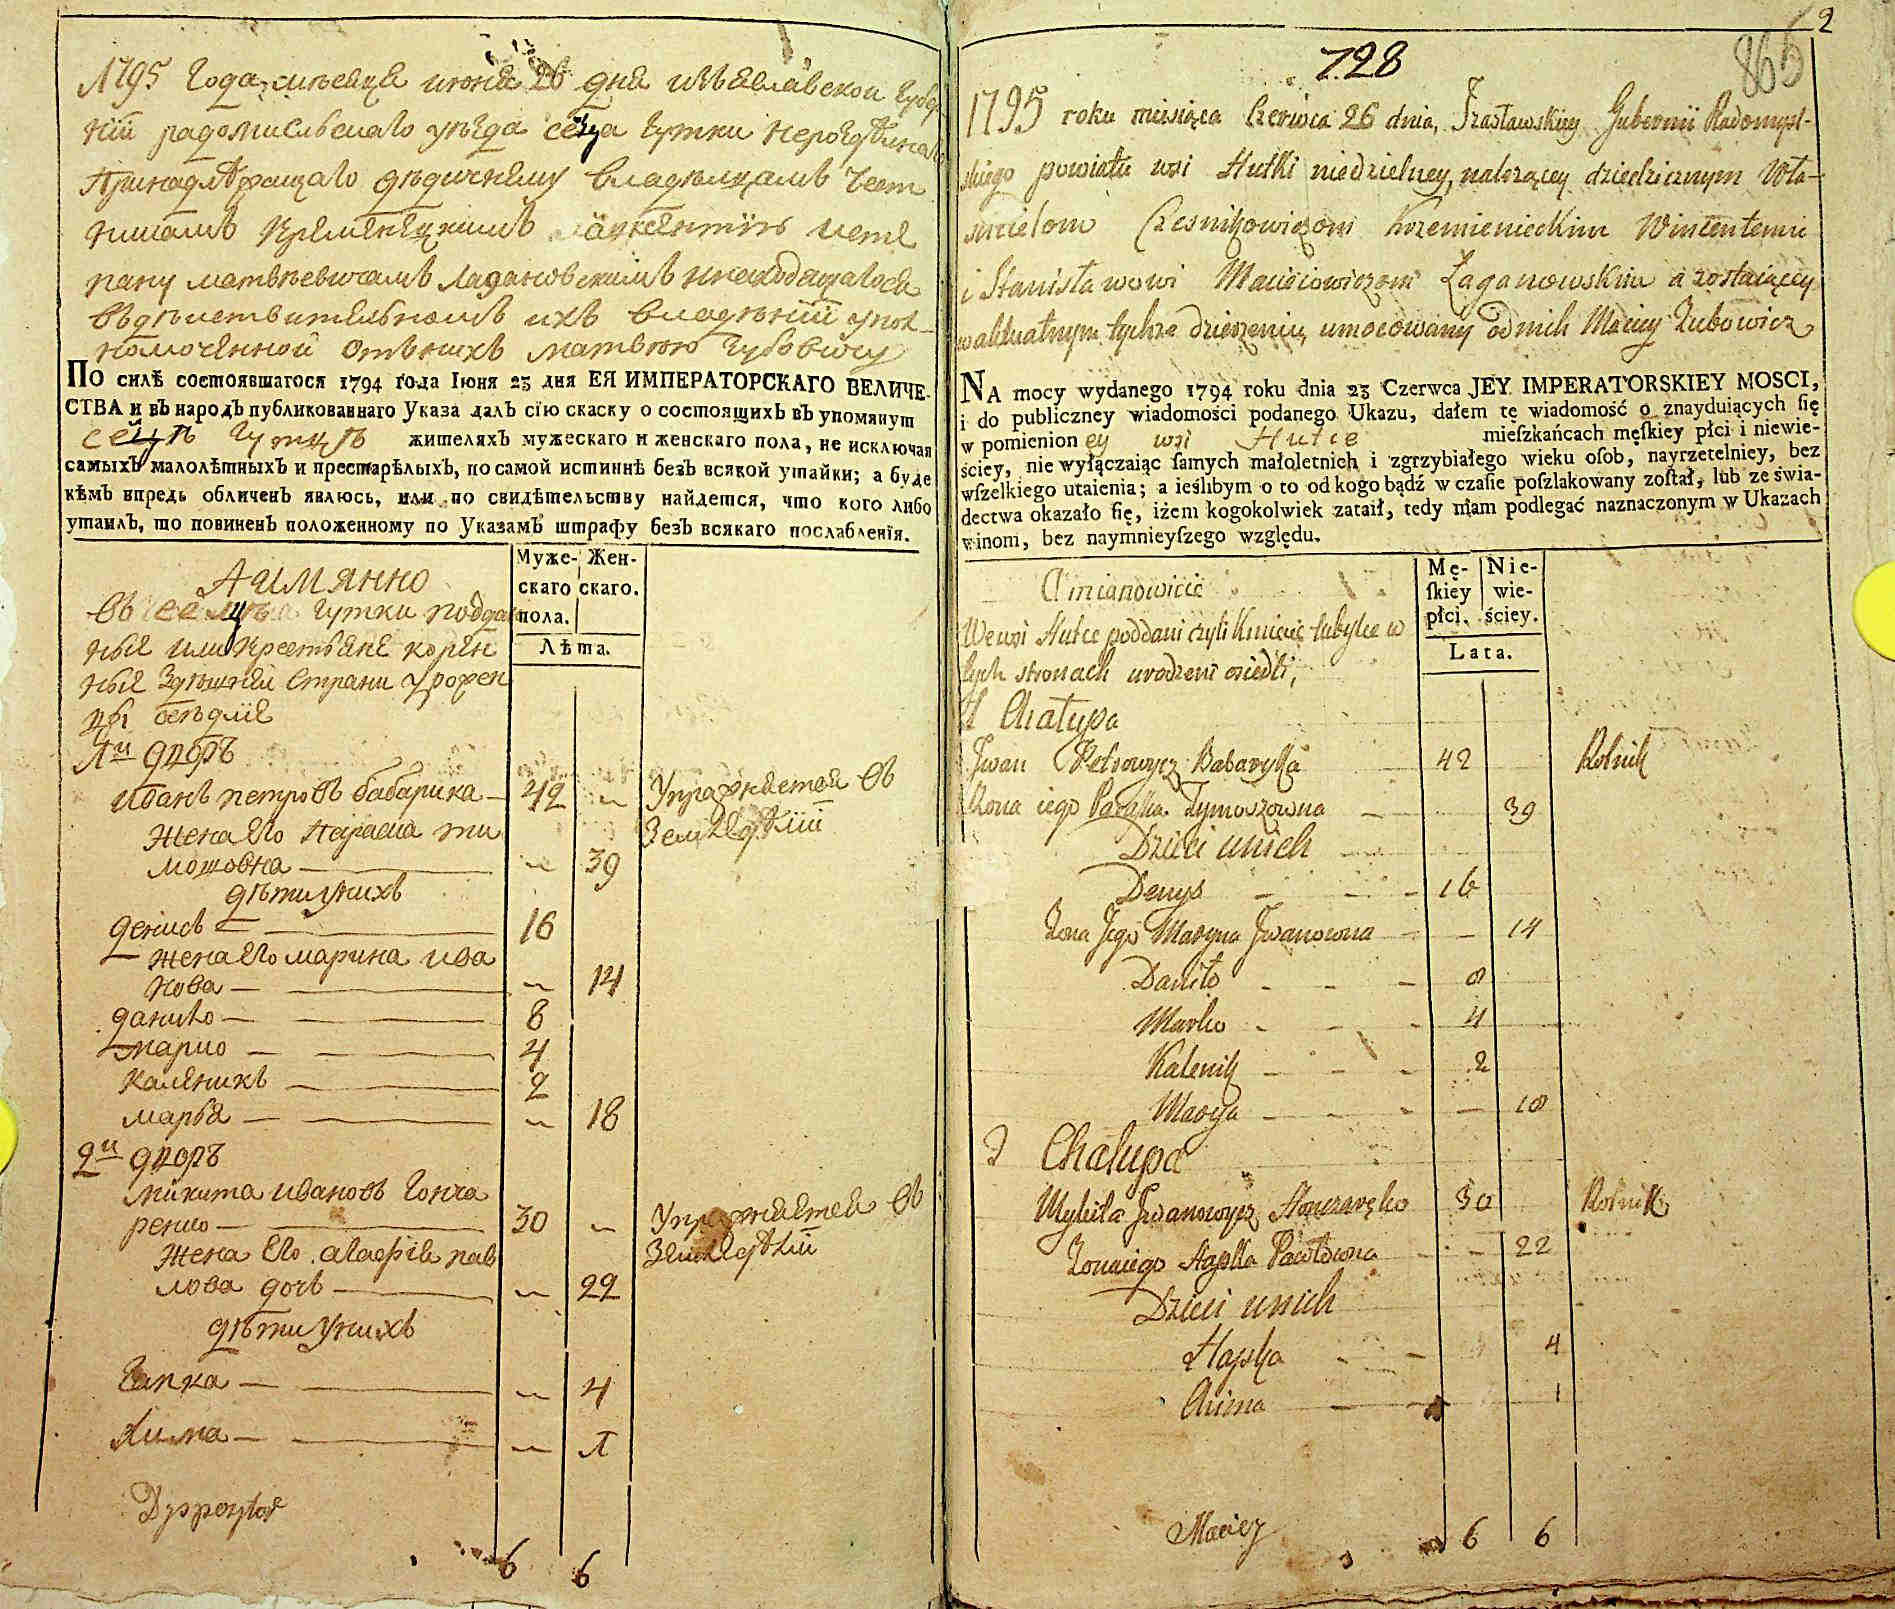 1795 года месяца июня 26 дня Изяславской губер
нїи радомисльскаго уезда села гутки нероздельнаго
принадлежащаго дедичнымъ владельцамъ чест
никамъ кременецкимъ
матвеевичамъ Лагановскимъ и находящагося
въ действительномъ ихъ владенїи упол-
номоченной отъ нихъ матвею Зубовичу
ПО силѣ состоявшагося 1794 года Іюня 23 дня ЕЯ ИМПЕРАТОРСКАГО ВЕЛИЧЕ-
СТВА и въ народъ публикованнаго Указа далъ сїю скаску о состоящихъ въ упомянут
селѣ гуткѣ жителяхъ мужескаго и женскаго пола, не исключая
самыхъ малолѣтныхъ и престарѣлыхъ, по самой истиннѣ безъ всякой утайки; а буде
кѣмъ впредь обличенъ явлюсь, или по свидѣтельству найдется, что кого либо
утаилъ, то повиненъ положенному по Указамъ штрафу безъ всякаго послабленїя.
Муже- Жен-
скаго скаго.
пола.
Лѣта.
А имянно
въ селе гутки поддан
ные или крестьяне корен
ные здешней страни урожен
цы
1й дворъ
иванъ петровъ бабарика — 42 — Упражняется въ
земледелїи
жена его Параска ти
мошовна — — 39
дѣти у нихъ
денисъ — 16
жена его марина ива
нова — — 14
данило — 8
марко — 4
каленикъ — 2
марья — — 18
2й дворъ
микита ивановъ гонча
ренко — 30 — Упражняется въ
земледелїи
жена его агафїя пав
лова дочь — — 22
дѣти у нихъ
гапка — — 4
Хима — — 1
6 6
2
728
865
1795 roku miesiąca Czerwca 26 dnia, Izasławskiey Gubernii Radomysl-
skiego powiatu wsi Hutki niedzielney, należącey dziedzicznym Wła-
scicielom Czesnikowiczom Krzemienieckim Wincentemu
i Stanisławowi Macieiowiczom Łaganowskim a zostaiącey
w aktualnym tychże dzierżeniu, umocowany od nich Maciey Zubowicz
NA mocy wydanego 1794 roku dnia 23 Czerwca JEY IMPERATORSKIEY MOSCI,
i do publiczney wiadomości podanego Ukazu, dałem tę wiadomość o znayduiących ſię
w pomienion ey wsi Hutce mieſzkańcach męſkiey płci i niewie-
ściey, nie wyłączaiąc ſamych małoletnich i zgrzybiałego wieku oſob, nayrzetelniey, bez
wſzelkiego utaienia; a ieślibym o to od kogo bądź w czaſie poſzlakowany zoſtał, lub ze świa-
dectwa okazało ſię, iżem kogokolwiek zataił, tedy mam podlegać naznaczonym w Ukazach
winom, bez naymnieyſzego względu.
Mę- Nie-
ſkiey wie-
płci. ściey.
Lata.
A mianowicie
We wsi Hutce poddani czyli Kmiecie tubylce w
tych stronach urodzeni osiedli,
1 Chałupa
Iwan Petrowycz Babaryka 42 Rolnik
Żona iego Paraska Tymoszowna — 39
Dzieci u nich
Denys - - - 16
Żona Jego Maryna Iwanowna - - 14
Daniło - - - 8
Marko - - - 4
Kalenik - - - 2
Marya - - - — 18
2 Chałupa
Mykita Iwanowycz Honczarenko 30 Rolnik
Żona iego Hapka Pawłowna - - 22
Dzieci u nich
Hapka - - 4
Chima - - 1
Maciey 6 6